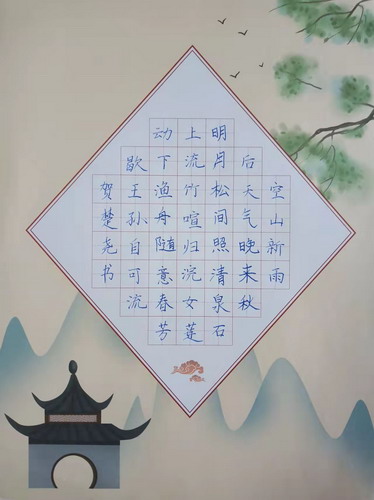 空山新雨
后天气晚来秋
明月松间照清泉石
上流竹喧归浣女莲
动下渔舟随意春芳
歇王孙自可流
贺楚尧书